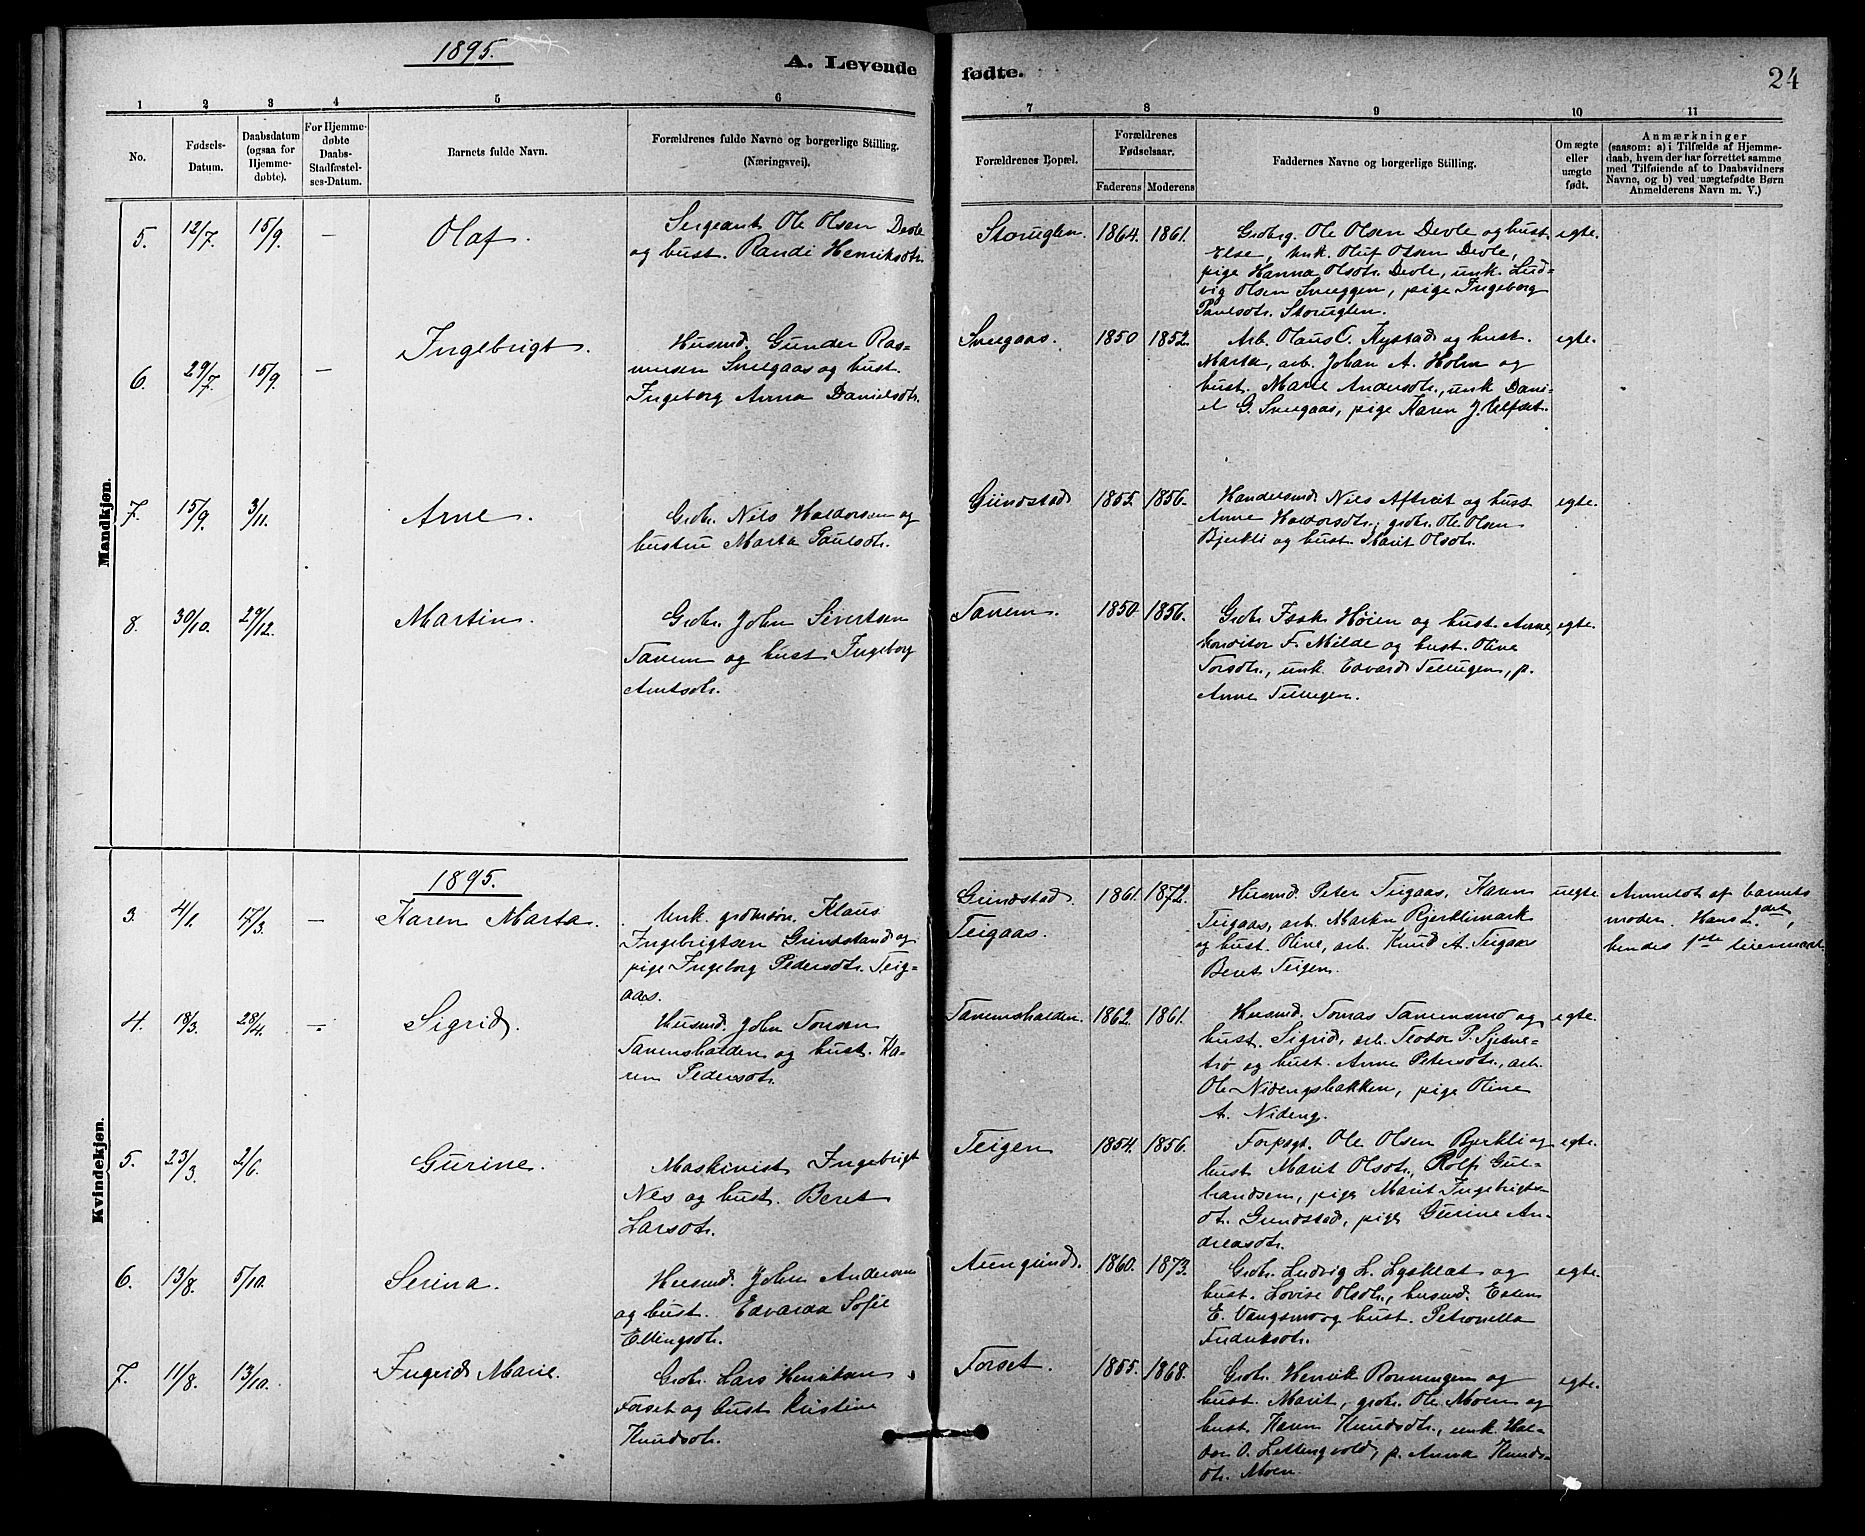 1895.
A. Levende
fødte.
24
1 2 3 4 5 6 7 8 9 10 11
No.
Fødsels-
Datum.
Daabsdatum
(ogsaa for
Hjemme-
døbte).
For Hjemme-
døbte
Daabs-
Stadfæstel-
ses-Datum.
Barnets fulde Navn.
Forældrenes fulde Navne og borgerlige Stilling.
(Næringsvei).
Forældrenes Bopæl.
Forældrenes
Fødselsaar.
Faderens Moderens
Faddernes Navne og borgerlige Stilling.
Om ægte
eller
uægte
født.
Anmærkninger
(saasom: a) i Tilfælde af Hjemme-
daab, hvem der har forrettet samme
med Tilføiende af to Daabsvidners
Navne, og b) ved uægtefødte Børn
Anmelderens Navn m. V.)
Mandkjøn.
5. 12/7. 15/9. — Olaf.
Sergeant Ole Olsen Devle
og hust. Randi Henriksdtr.
Storuglen. 1864. 1861.
Grdbrg. Ole Olsen Devle og hust.
Else, unk. Oluf Olsen Devle,
pige Hanna Olsdtr. Devle, unk. Lud-
vig Olsen Sveeggen, pige Ingeborg
Paulsdtr. Storuglen.
egte.
6. 29/7. 15/9. — Ingebrigt.
Husmd. Gunder Ras-
mussen Sveegaas og hust.
Ingeborg Anna Danielsdtr.
Sveegaas. 1850 1852.
Arb. Olaus O. Rystad og hust.
Marta, arb. Johan A. Holm og
hust. Marie Andersdtr., unk Dani-
el G. Sveegaas, pige Karen J. Ulfset.
egte.
7. 15/9. 3/11. Arne.
Grdbr. Nils Haldorsen og
hustru Marta Paulsdtr.
Grindstad 1855. 1856.
Handelsmd. Nils Aftreit og hust
Anne Haldorsdtr., grdbr. Ole Olsen
Bjerkli og hust. Marit Olsdtr.
egte.
8. 30/10. 29/12. Martin.
Grdbr. John Sivertsen
Tanem og hust Ingeborg
Arntsdtr.
Tanem. 1850 1856.
Grdbr Isak Høien og hust. Anne,
konditor F. Milde og hust. Oline
Torsdtr., unk. Edvard Tellugen, p.
Anne Tellugen.
egte.
Kvindekjøn.
1895.
3. 4/1. 17/3. — Karen Marta.
Unk. grdmsøn. Klaus
Ingebrigtsen Grindstand og
pige Ingeborg Pedersdtr. Teig-
aas.
Grindstad
Teigaas.
1861. 1872.
Husmd. Peter Teigaas, Karen
Teigaas, arb. Martin Bjerklimark
og hust. Oline, arb. Knud A. Teigaas
Beret Teigen.
uegte
Anmeldt af barnets
moder. Hans 2det,
hendes 1ste leiermaal.
4. 18/3. 28/4. — Sigrid.
Husmd. John Tonsen
Tanemshalden og hust. Ka-
ren Pedersdtr.
Tanemshalden. 1862. 1861.
Husmd. Tomas Tanemsmo og
hust. Sigrid, arb. Teodor P. Sjetne-
trø og hust. Anne Petersdtr., arb.
Ole Nidengsbakken, pige Oline
A. Nideng.
egte.
5. 23/3. 2/6. Gurine.
Maskinist Ingebrigt
Nes og hust. Beret
Larsdtr.
Teigen 1854. 1856.
Forpagt. Ole Olsen Bjerkli og
hust Marit Olsdtr., Rolf Gul-
brandsen, pige Marit Ingebrigts-
dt. Grindstad, pige Gurine An-
dreasdtr.
egte.
6. 13/8. 5/10. Serina.
Husmd. John Andersen
og hust. Edvarda Sofie
Ellingsdtr.
Aungrind. 1860. 1873.
Grdbr. Ludvig L. Lysklæt og
hust. Lovise Olsdtr., husmd. Esten
E. Vangsmo og hust. Petronella
Fredriksdtr.
egte.
7. 11/8. 13/10. Ingrid Marie.
Grdbr. Lars Henriksen
Forset og hust Kristine
Knudsdtr.
Forset. 1855. 1868.
Grdbr. Henrik Rønningen og
hust. Marit, grdbr. Ole Moen og
hust. Karen Knudsdtr., unk. Hal-
dor O. Lettingvold, p. Anna Knuds-
dtr. Moen.
egte.